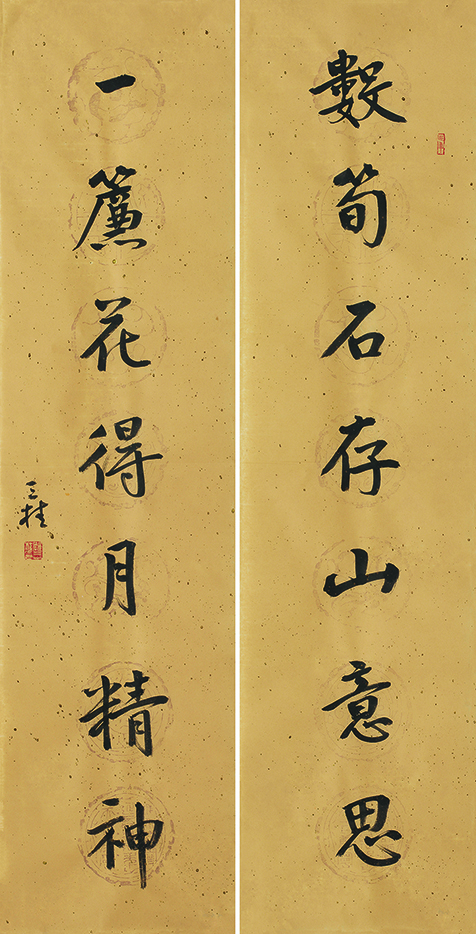 數筍石存山意思
一簾花得月精神
三桂